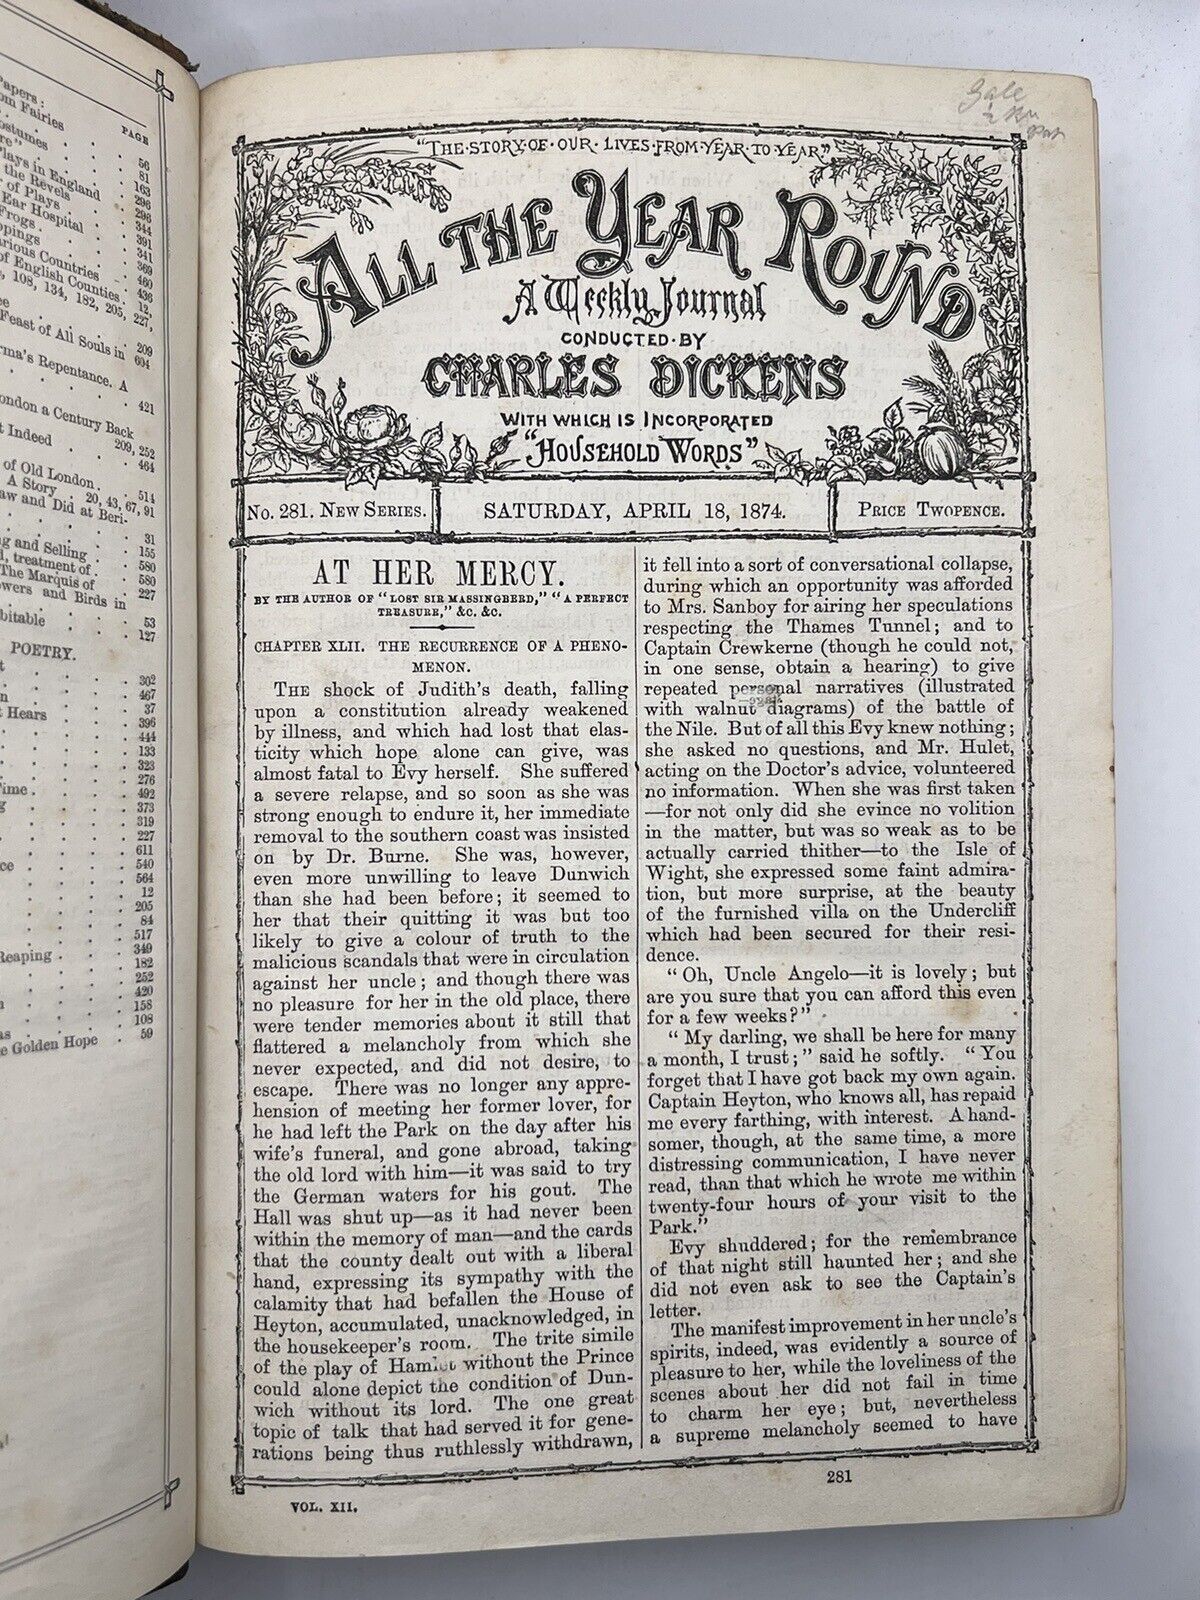 Papers:
om Fairies
PAGE
ostumes . . . 56
re" . . . 81
Plays in England . 163
the Revels . 296
r of Plays . . 298
Ear Hospital . . 344
Frogs . . . 391
ppings . . . 341
arious Countries . 369
of English Counties . 460
436
12,
, 108, 134, 182, 205, 227,
ee . . . 209
Feast of All Souls in 604
rma's Repentance. A
. . . 421
ondon a Century Back
209, 252
t Indeed . . 464
of Old London . . 514
A Story . 20, 43, 67, 91
aw and Did at Beri-
. . . 31
ng and Selling . . 155
d, treatment of . . 580
The Marquis of . 580
owers and Birds in 227
. . . 53
bitable . . . 127
POETRY.
t . . . 302
n . . . 467
37
t Hears . . . 396
. . . 444
. . . 133
. . . 323
. . . 276
Time . . . 492
g . . . 373
. . . 319
. . . 227
. . . 611
ce . . . 540
. . . 564
. . . 12
. . . 205
. . . 84
. . . 517
Reaping . . . 349
. . . 182
. . . 252
. . . 420
n . . . 158
. . . 108
as . . . 59
e Golden Hope .
"THE·STORY·OF·OUR·LIVES·FROM·YEAR·TO·YEAR"
ALL THE YEAR ROUND
A Weekly Journal
CONDUCTED·BY
CHARLES DICKENS
WITH WHICH IS INCORPORATED
"HOUSEHOLD WORDS"
No. 281. NEW SERIES. SATURDAY, APRIL 18, 1874. PRICE TWOPENCE.
AT HER MERCY.
BY THE AUTHOR OF "LOST SIR MASSINGBERD," "A PERFECT
TREASURE," &C. &C.
CHAPTER XLII. THE RECURRENCE OF A PHENO-
MENON.
THE shock of Judith's death, falling
upon a constitution already weakened
by illness, and which had lost that elas-
ticity which hope alone can give, was
almost fatal to Evy herself. She suffered
a severe relapse, and so soon as she was
strong enough to endure it, her immediate
removal to the southern coast was insisted
on by Dr. Burne. She was, however,
even more unwilling to leave Dunwich
than she had been before; it seemed to
her that their quitting it was but too
likely to give a colour of truth to the
malicious scandals that were in circulation
against her uncle; and though there was
no pleasure for her in the old place, there
were tender memories about it still that
flattered a melancholy from which she
never expected, and did not desire, to
escape. There was no longer any appre-
hension of meeting her former lover, for
he had left the Park on the day after his
wife's funeral, and gone abroad, taking
the old lord with him—it was said to try
the German waters for his gout. The
Hall was shut up—as it had never been
within the memory of man—and the cards
that the county dealt out with a liberal
hand, expressing its sympathy with the
calamity that had befallen the House of
Heyton, accumulated, unacknowledged, in
the housekeeper's room. The trite simile
of the play of Hamlet without the Prince
could alone depict the condition of Dun-
wich without its lord. The one great
topic of talk that had served it for gene-
rations being thus ruthlessly withdrawn,
it fell into a sort of conversational collapse,
during which an opportunity was afforded
to Mrs. Sanboy for airing her speculations
respecting the Thames Tunnel; and to
Captain Crewkerne (though he could not,
in one sense, obtain a hearing) to give
repeated personal narratives (illustrated
with walnut diagrams) of the battle of
the Nile. But of all this Evy knew nothing;
she asked no questions, and Mr. Hulet,
acting on the Doctor's advice, volunteered
no information. When she was first taken
—for not only did she evince no volition
in the matter, but was so weak as to be
actually carried thither—to the Isle of
Wight, she expressed some faint admira-
tion, but more surprise, at the beauty
of the furnished villa on the Undercliff
which had been secured for their resi-
dence.
"Oh, Uncle Angelo—it is lovely; but
are you sure that you can afford this even
for a few weeks?"
"My darling, we shall be here for many
a month, I trust;" said he softly. "You
forget that I have got back my own again.
Captain Heyton, who knows all, has repaid
me every farthing, with interest. A hand-
somer, though, at the same time, a more
distressing communication, I have never
read, than that which he wrote me within
twenty-four hours of your visit to the
Park."
Evy shuddered; for the remembrance
of that night still haunted her; and she
did not even ask to see the Captain's
letter.
The manifest improvement in her uncle's
spirits, indeed, was evidently a source of
pleasure to her, while the loveliness of the
scenes about her did not fail in time
to charm her eye; but, nevertheless
a supreme melancholy seemed to have
VOL. XII.
281